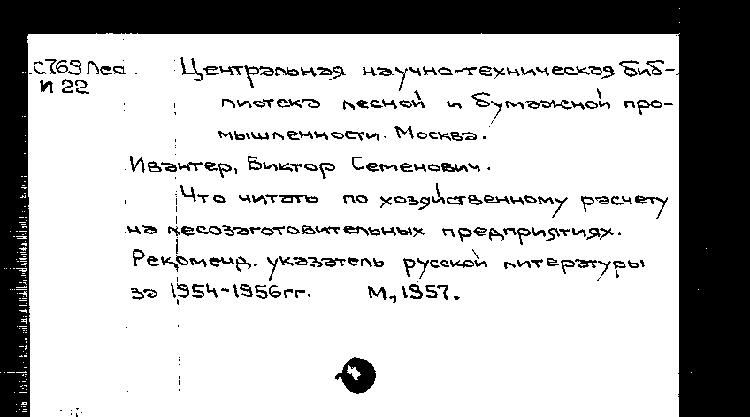 с763 Лес Центральная научно-техническая биб-
И 22
лиотека лесной и бумажной про-
мышленности. Москва.
Ивантер, Виктор Семенович.
Что читать по хозяйственному расчету
на лесозаготовительных предприятиях.
Рекоменд. указатель русской литературы
за 1954-1956гг. М., 1957.